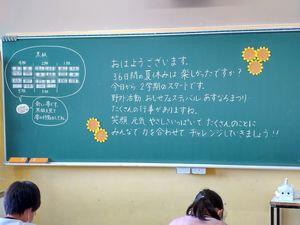 おはようございます。
36日間の夏休みは楽しかったですか?
今日から2学期のスタートです。
野外活動 おしせフェスティバル あすなろまつり
たくさんの行事がありますね。
笑顔 元気 やさしさいっぱいで たくさんのことに
みんなで 力を合わせて チャレンジしていきましょう!!
黒板